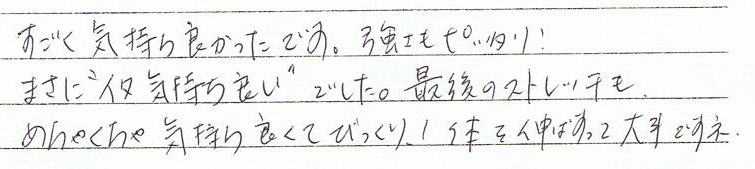 すごく気持ち良かったです。強さもピッタリ!
まさに"イタ気持ち良い"でした。最後のストレッチも、
めちゃくちゃ気持ち良くてびっくり、!体を伸ばすって大事ですネ.